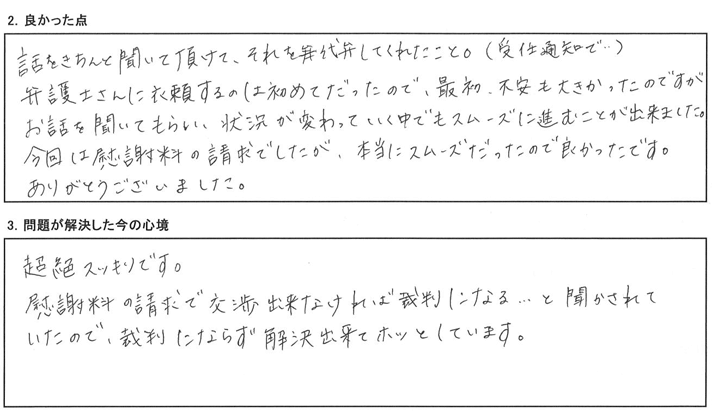 2. 良かった点
話をきちんと聞いて頂けて、それを代弁してくれたこと。(受任通知で‥)
弁護士さんに依頼するのは初めてだったので、最初、不安も大きかったのですが
お話を聞いてもらい、状況が変わっていく中でもスムーズに進むことが出来ました。
今回は慰謝料の請求でしたが、本当にスムーズだったので良かったです。
ありがとうございました。
3. 問題が解決した今の心境
超絶スッキリです。
慰謝料の請求で交渉出来なければ裁判になる…と聞かされて
いたので、裁判にならず解決出来てホッとしています。